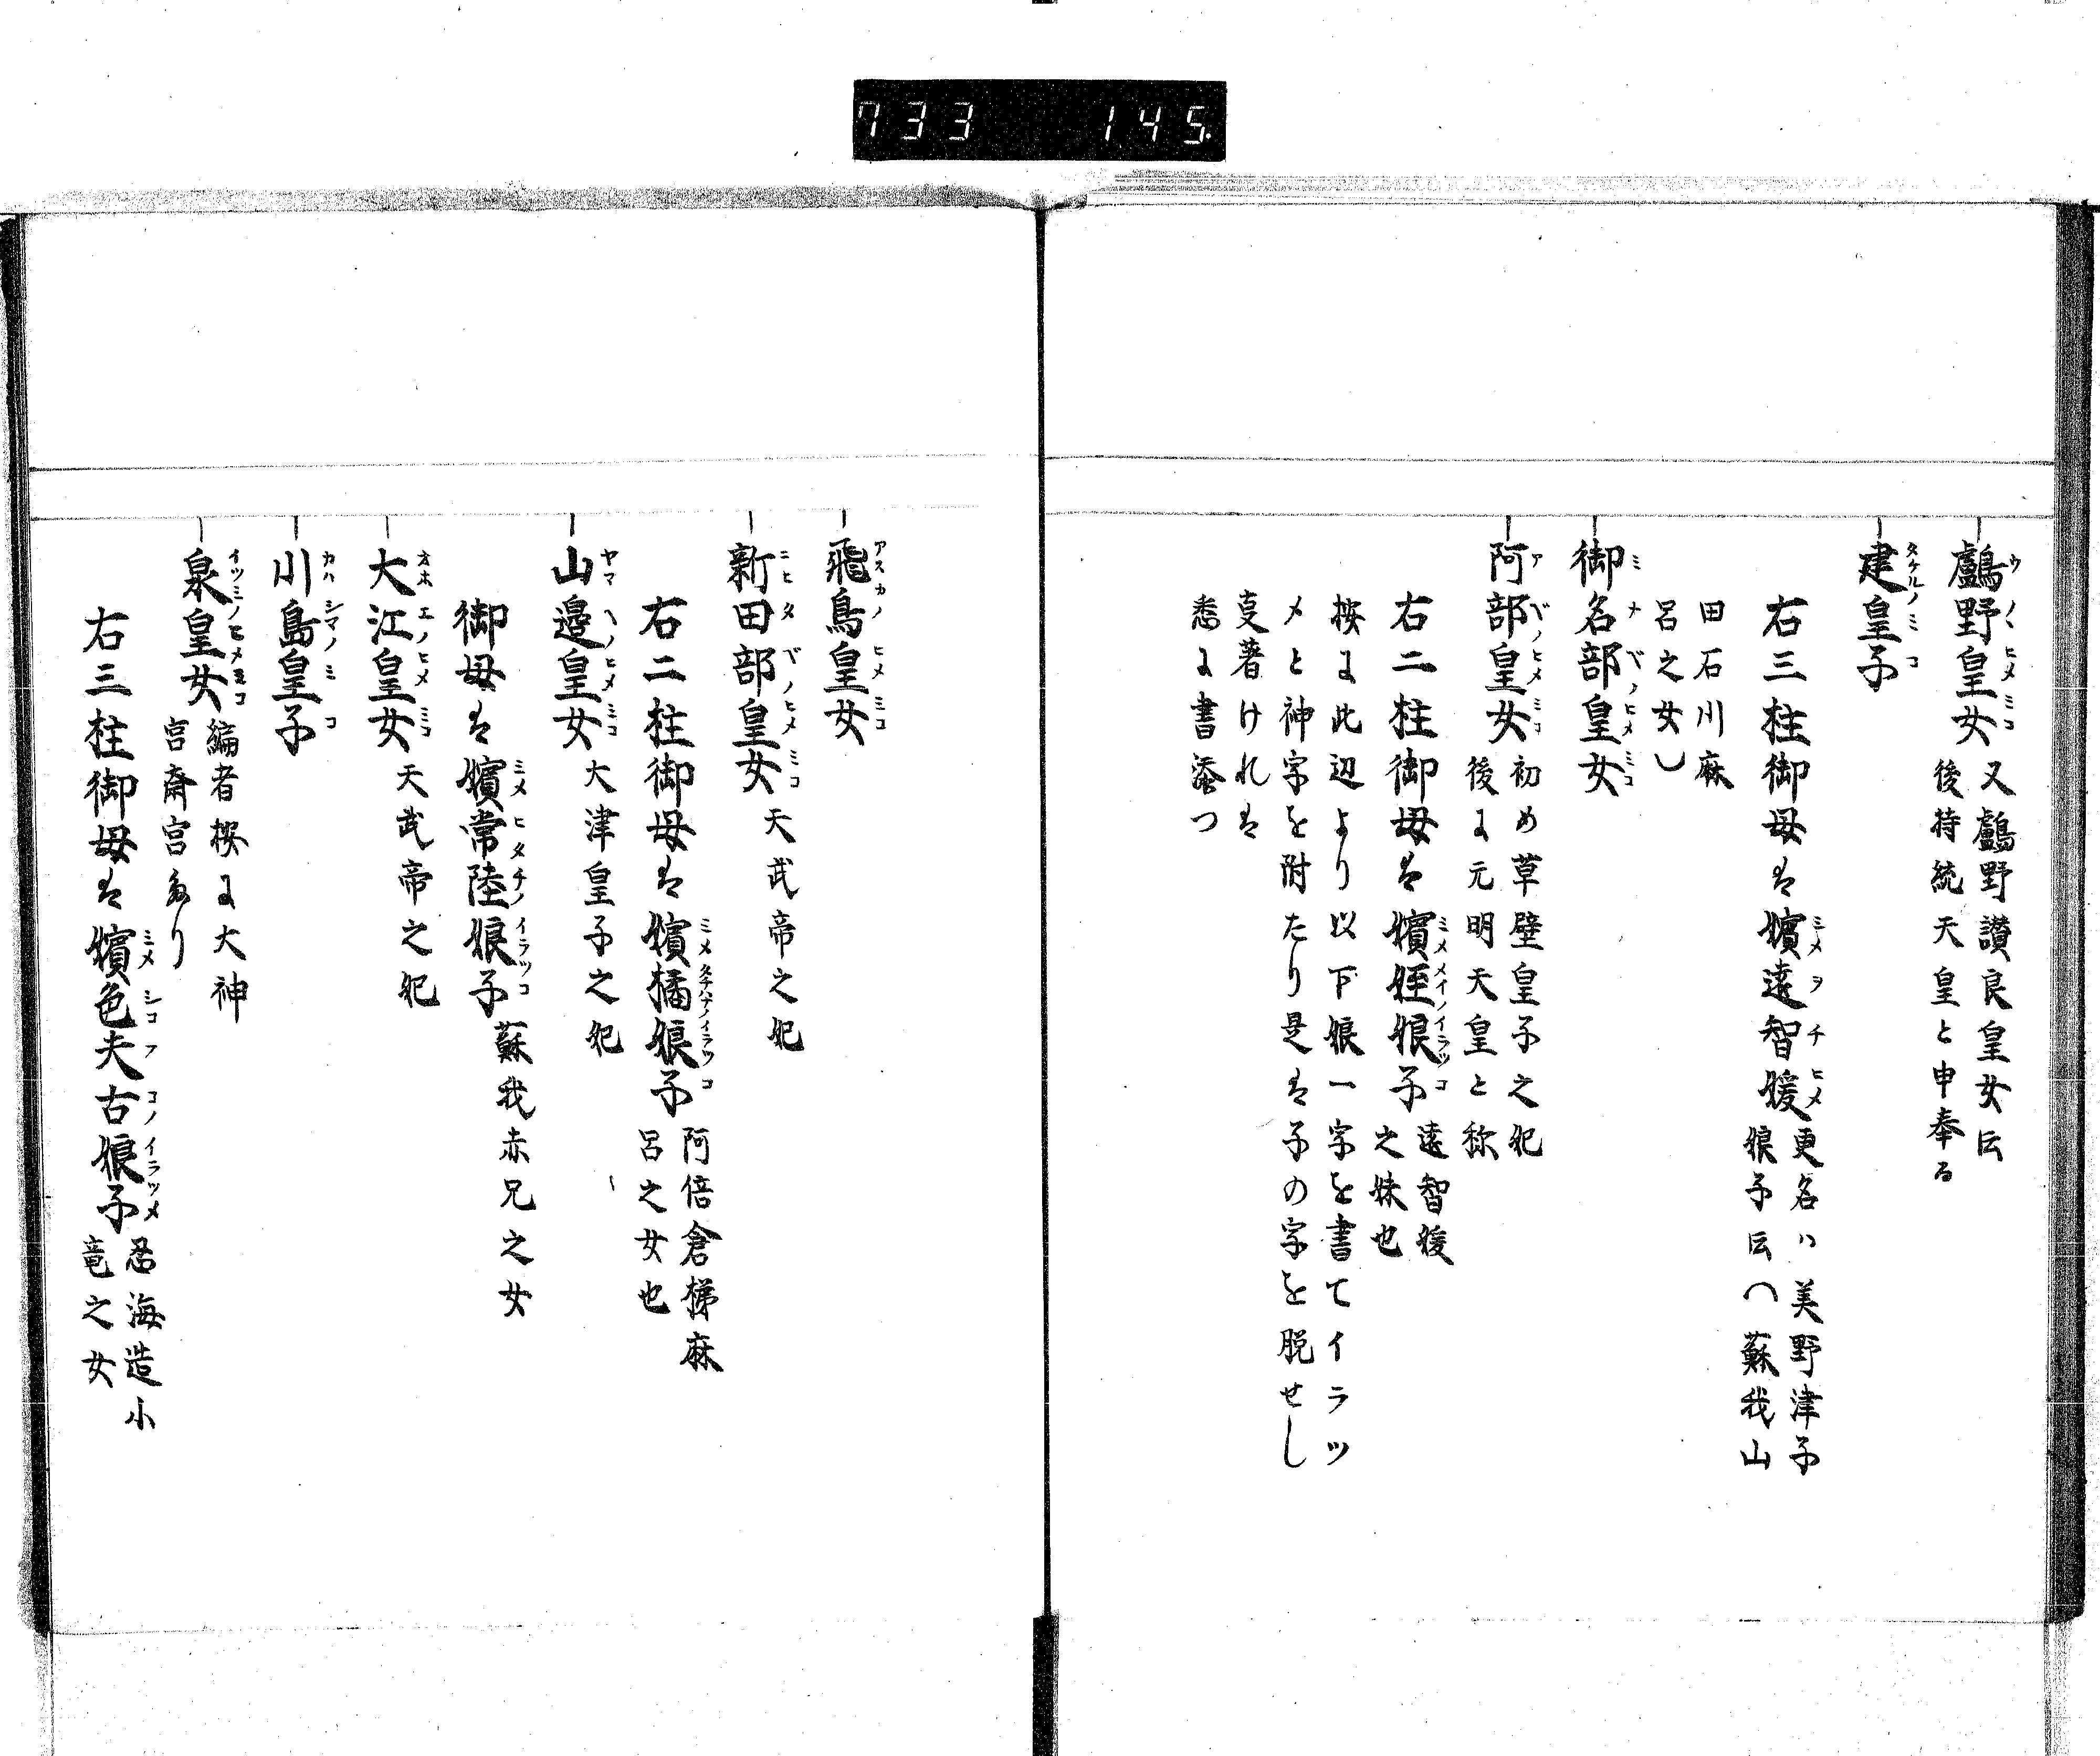 733 145
鸕野皇女 又鸕野讃良皇女伝
後持統天皇と申奉る
建皇子
右三柱御母は嬪遠智媛 更名ハ美野津子
娘子伝(蘇我山
田石川麻
呂之女)
御名部皇女
阿部皇女 初め草壁皇子之妃
後に元明天皇と称
右二柱御母は嬪姪娘子 遠智媛
之妹也
按に此辺より以下娘一字を書てイラツ
メと神字を附たり是は子の字を脱せし
㕝著けれは
悉に書添つ
飛鳥皇女
新田部皇女 天武帝之妃
右二柱御母は嬪橘娘子 阿倍倉梯麻
呂之女也
山邊皇女 大津皇子之妃
御母は嬪常陸娘子 蘇我赤兄之女
大江皇女 天武帝之妃
川島皇子
泉皇女 編者按に大神
宮斎宮あり
右三柱御母は嬪色夫古娘子 忍海造小
竜之女